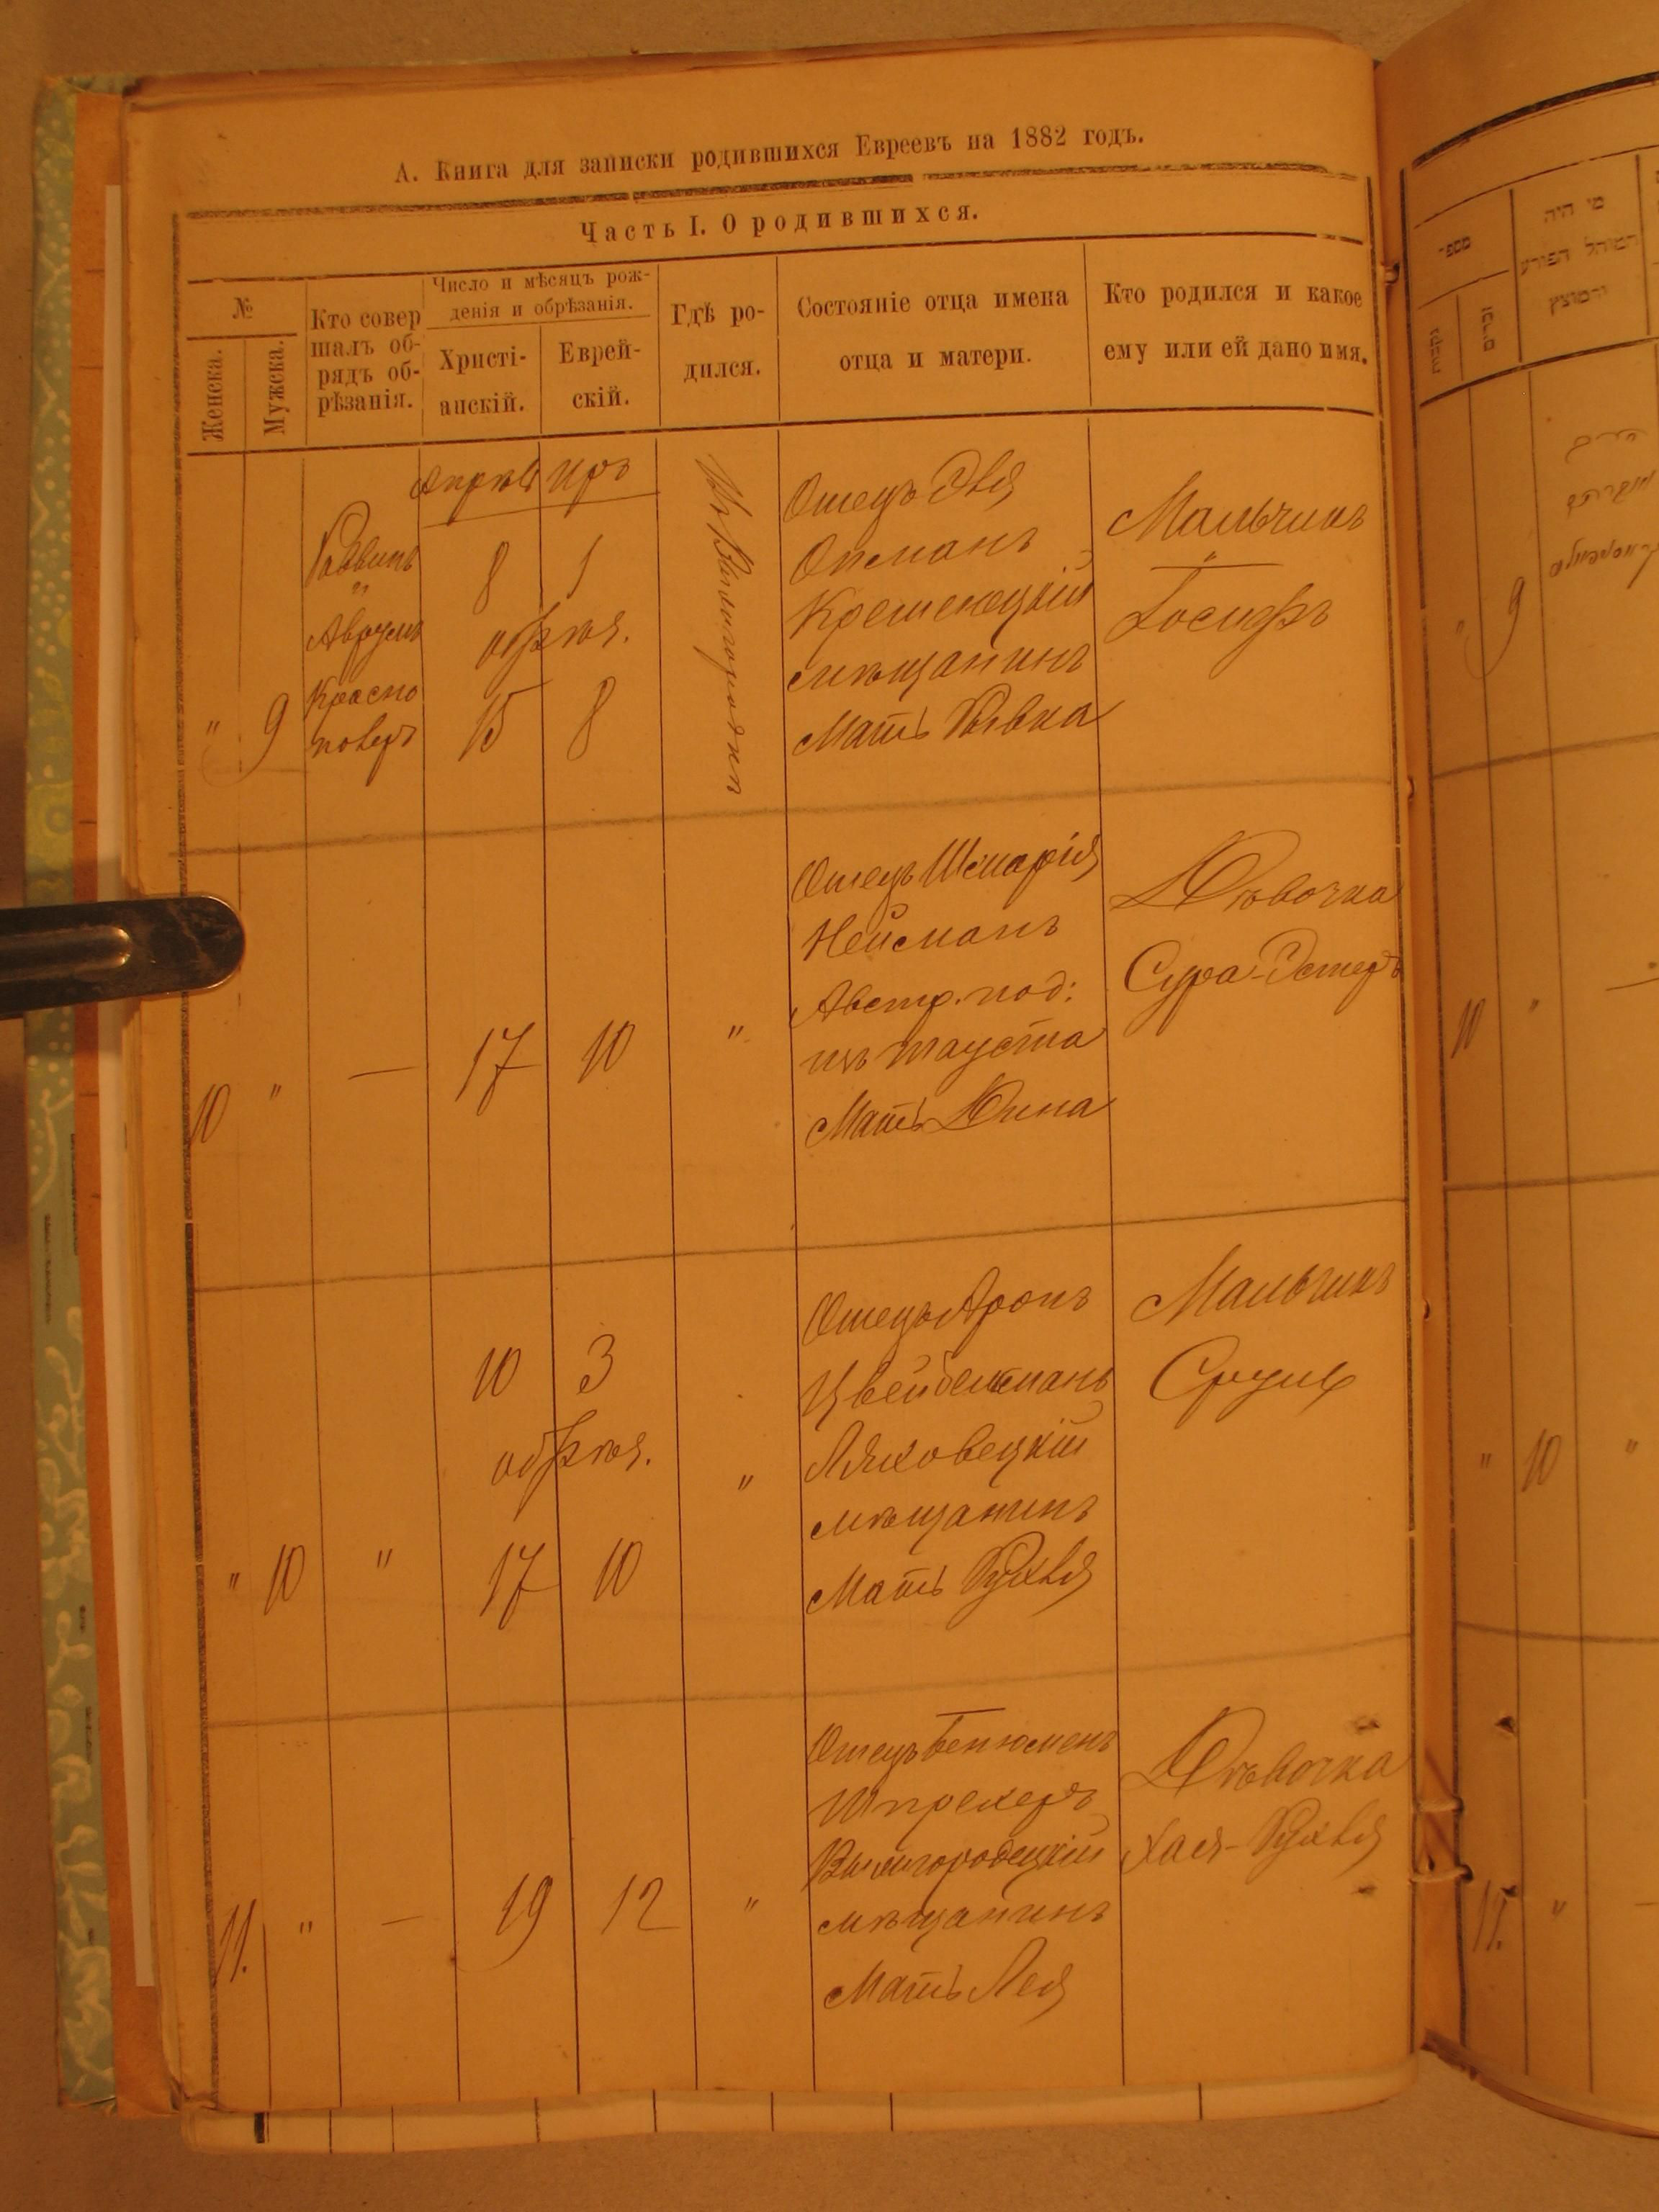 А. Книга для записки родившихся Евреевъ на 1882 годъ.
Часть I. О родившихся.
№
Женска.
Мужска.
Кто совер
шалъ об-
рядъ об-
рѣзанія.
Число и мѣсяцъ рож-
денія и обрѣзанія.
Христі-
анскій.
Еврей-
скій.
Гдѣ ро-
дился.
Состояніе отца имена
отца и матери.
Кто родился и какое
ему или ей дано имя.
" 9
Раввинъ
"
Аврумъ
Красно
поверъ
Апрѣль Иръ
8 1
обрѣз.
15 8
Въ Вышгородкѣ
Отецъ
Опманъ
Кременецкій
мѣщанинъ
Мать Рывка
Мальчикъ
"
Іосифъ
10 " — 17 10 "
Отецъ Шмарія
Нейсманъ
Австр. под:
изъ
Мать Дина
Дѣвочка
Сура-Эстеръ
" 10 "
10 3
обрѣз.
17 10
"
Отецъ Аронъ
Ляховецкій
мѣщанинъ
Мать Рухля
Мальчикъ
Сруль
11. " — 19 12 "
Отецъ Бенюменъ
Шпрехеръ
Вышгородецкій
мѣщанинъ
Мать Лея
Дѣвочка
Хая-Рухля
מספר
נקבות
זכרים
מי היה
המוהל הפורע
והמוצץ
" 9
10 "
" 10 "
11. "